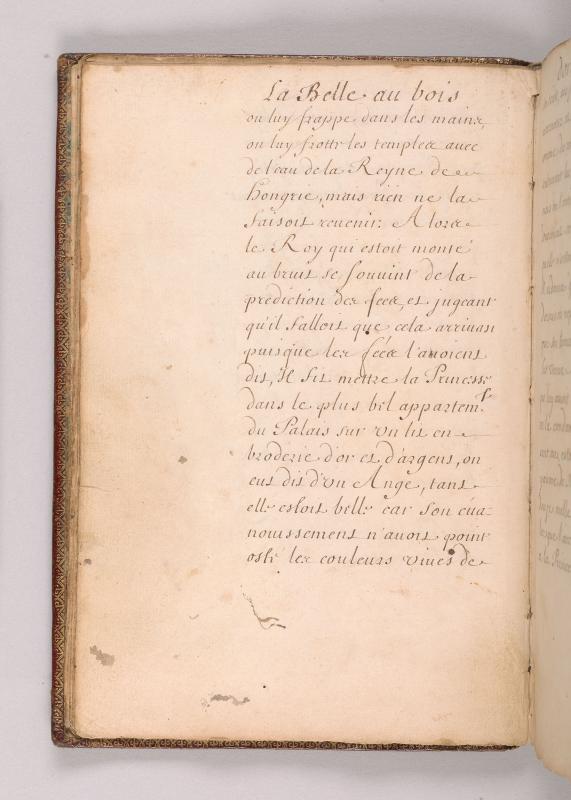 La Belle au bois
on luy frappe dans les mains,
on luy frotte les temples avec
de l'eau de la Reyne de
hongrie, mais rien ne la
faisoit revenir. Alors
le Roy qui estoit monté
au bruit se souvint de la
prediction des fées, et jugeant
qu'il falloit que cela arrivast
puisque les fées l'avoient
dit, Il fit mettre la Princesse
dans le plus bel appartemt
du Palais sur un lit en
broderie d'or et d'argent, on
eut dit d'un Ange, tant
elle estoit belle car son éva-
nouissement n'avoit point
osté les couleurs vives de